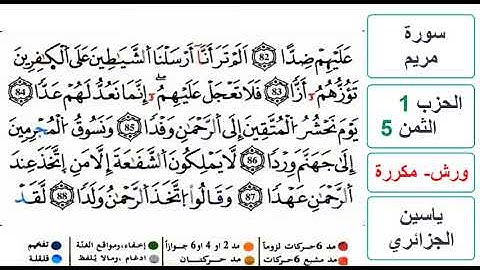 عَلَيْهِمْ ضِدًّا 82 أَلَمْ تَرَ أَنَّا أَرْسَلْنَا الشَّيَاطِينَ عَلَى الْكٰفِرِينَ
تَؤُزُّهُمُۥ أَزًّا 83 فَلَا تَعْجَلْ عَلَيْهِمُۥ إِنَّمَا نَعُدُّ لَهُمْ عَدًّا 84
يَوْمَ نَحْشُرُ الْمُتَّقِينَ إِلَى الرَّحْمَٰنِ وَفْدًا 85 وَنَسُوقُ الْمُجْرِمِينَ
إِلَىٰ جَهَنَّمَ وِرْدًا 86 لَّا يَمْلِكُونَ الشَّفَٰعَةَ إِلَّا مَنِ اتَّخَذَ عِندَ
الرَّحْمَٰنِ عَهْدًا 87 وَقَالُوا اتَّخَذَ الرَّحْمَٰنُ وَلَدًا 88 لَّقَدْ
مد 6 حركات لزوماً مد 2 أو 4 أو 6 جوازاً إخفاء، ومواقع الغنة تفخيم
مد مشبع 6 حركات مد حركتان إدغام، ومالا يُلفظ قلقلة
سورة
مريم
الحزب 1
الثمن 5
ورش- مكررة
ياسين
الجزائري